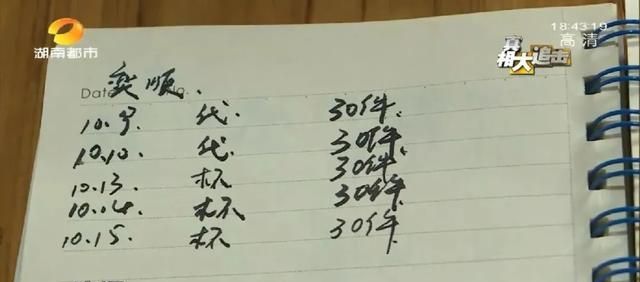 湖南都市
18:43:19
高清
真相大追击
Date No.
顺.
10.9. 代. 30件.
10.10. 代. 30件.
10.13. 杯 30件.
10.14. 杯 30件.
10.15. 杯 30件.